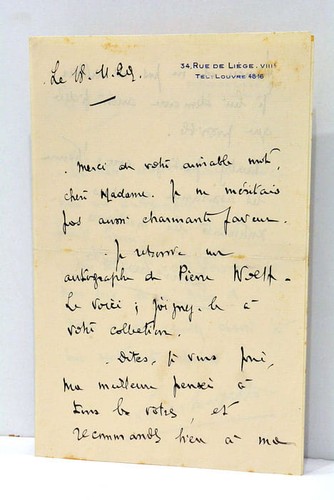 34, RUE DE LIÈGE. VIIIᵉ
TEL: LOUVRE 48-16
Le 18. 11. 29.
. Merci de votre aimable mot,
chère Madame. Je ne méritais
pas aussi charmante faveur.
. Je retrouve un
autographe de Pierre Wolff -
Le voici ; joignez-le à
votre collection.
. Dites, je vous prie,
ma meilleure pensée à
tous les vôtres, et
recommandez bien à ma